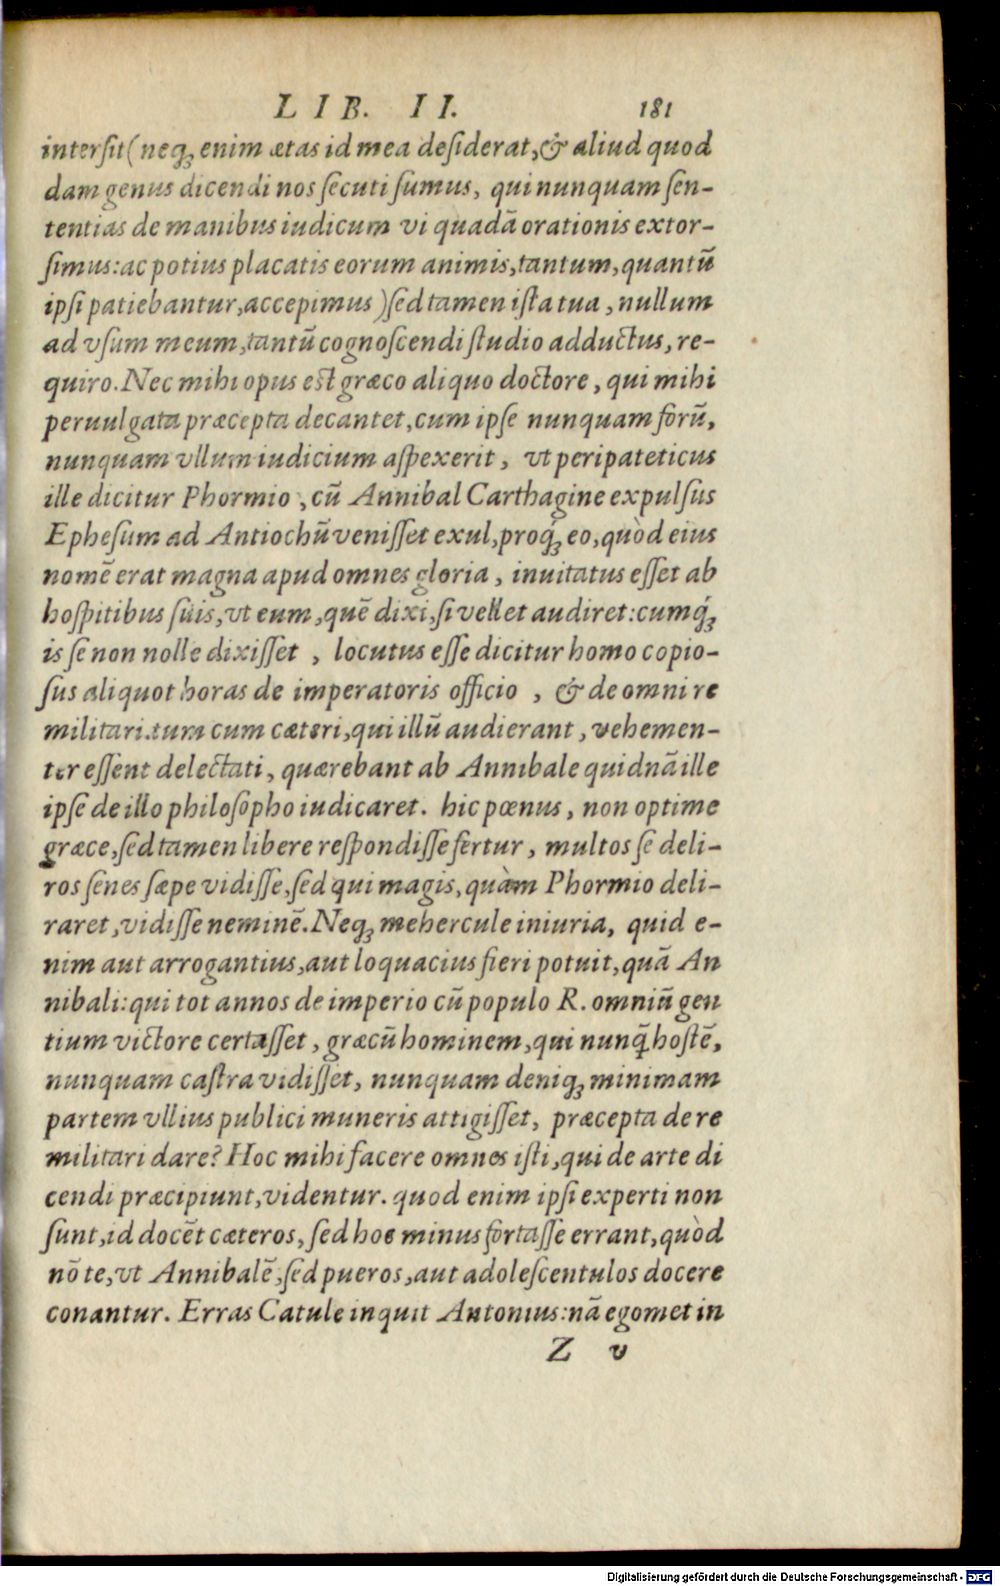 LIB. II. 181
interſit (neq́ꝫ enim ætas id mea deſiderat, & aliud quod
dam genus dicendi nos ſecuti ſumus, qui nunquam ſen-
tentias de manibus iudicum vi quadā orationis extor-
ſimus: ac potius placatis eorum animis, tantum, quantū
ipſi patiebantur, accepimus) ſed tamen iſta tua, nullum
ad vſum meum, tantū cognoſcendi ſtudio adductus, re-
quiro. Nec mihi opus eſt græco aliquo doctore, qui mihi
peruulgata præcepta decantet, cum ipſe nunquam forū,
nunquam vllum iudicium aſpexerit, vt peripateticus
ille dicitur Phormio, cū Annibal Carthagine expulſus
Epheſum ad Antiochū veniſſet exul, proq́ꝫ eo, quòd eius
nomē erat magna apud omnes gloria, inuitatus eſſet ab
hoſpitibus ſuis, vt eum, quē dixi, ſi vellet audiret: cumq́ꝫ
is ſe non nolle dixiſſet, locutus eſſe dicitur homo copio-
ſus aliquot horas de imperatoris officio, & de omni re
militari. tum cum cæteri, qui illū audierant, vehemen-
ter eſſent delectati, quærebant ab Annibale quidnā ille
ipſe de illo philoſopho iudicaret. hic pœnus, non optime
græce, ſed tamen libere reſpondiſſe fertur, multos ſe deli-
ros ſenes ſæpe vidiſſe, ſed qui magis, quàm Phormio deli-
raret, vidiſſe neminē. Neqꝫ mehercule iniuria, quid e-
nim aut arrogantius, aut loquacius fieri potuit, quā An
nibali: qui tot annos de imperio cū populo R. omniū gen
tium victore certaſſet, græcū hominem, qui nunq̄ hoſtē,
nunquam caſtra vidiſſet, nunquam deniqꝫ minimam
partem vllius publici muneris attigiſſet, præcepta de re
militari dare? Hoc mihi facere omnes iſti, qui de arte di
cendi præcipiunt, videntur. quod enim ipſi experti non
ſunt, id docēt cæteros, ſed hoc minus fortaſſe errant, quòd
nō te, vt Annibalē, ſed pueros, aut adoleſcentulos docere
conantur. Erras Catule inquit Antonius: nā egomet in
Z v
Digitalisierung gefördert durch die Deutsche Forschungsgemeinschaft - DFG